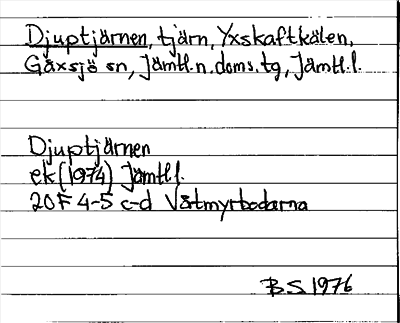 Djuptjärnen, tjärn, Yxskaftkälen,
Gåxsjö sn, Jämtl.n.doms.tg, Jämtl.l.
Djuptjärnen
ek (1974) Jämtl.l.
20F 4-5 c-d Våtmyrbodarna
BS 1976